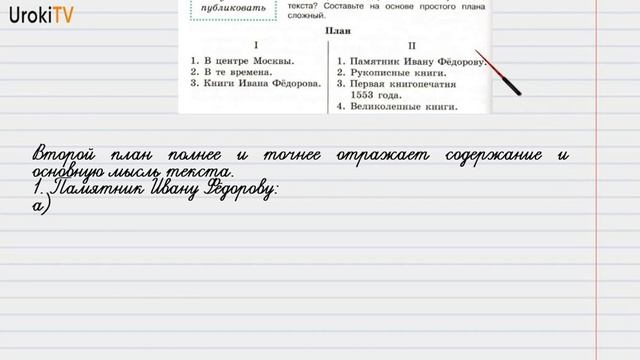 UrokiTV
публиковать
текста? Составьте на основе простого плана
сложный.
План
I
II
1. В центре Москвы.
2. В те времена.
3. Книги Ивана Фёдорова.
1. Памятник Ивану Фёдорову.
2. Рукописные книги.
3. Первая книгопечатня
1553 года.
4. Великолепные книги.
Второй план полнее и точнее отражает содержание и
основную мысль текста.
1. Памятник Ивану Фёдорову:
а)